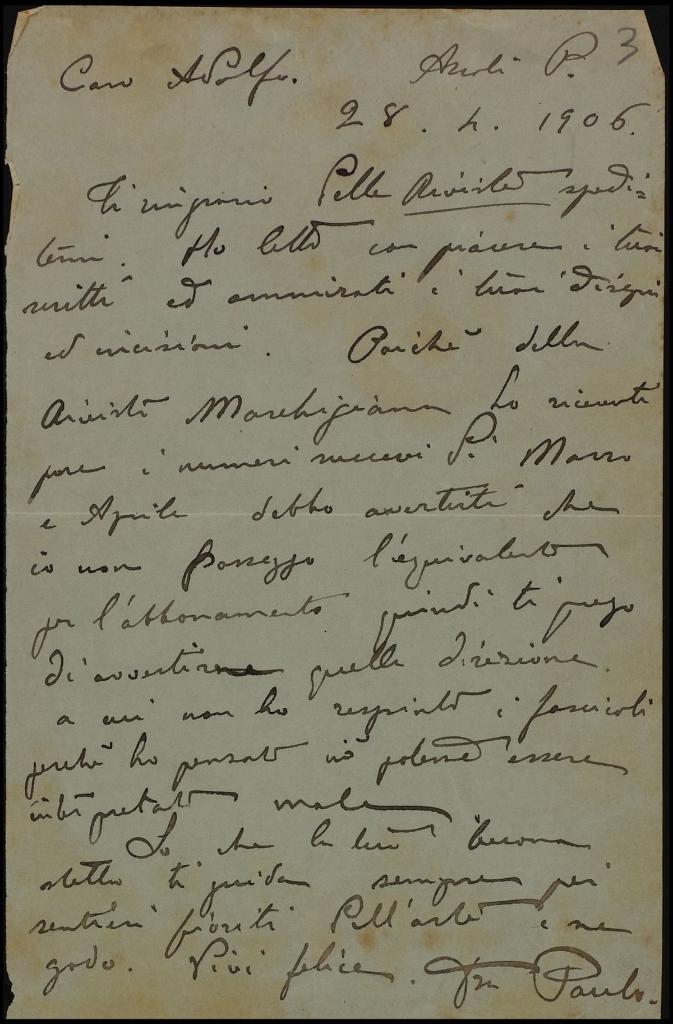 3
Caro Adolfo. Ascoli P.
28. 4. 1906.
Ti ringrazio delle Riviste spedi=
temi. Ho letto con piacere i tuoi
scritti ed ammirati i tuoi disegni
ed incisioni. Poichè della
Rivista Marchigiana ho ricevuti
pure i numeri successivi di Marzo
e Aprile debbo avvertirti che
io non posseggo l'equivalente
per l'abbonamento quindi ti prego
di avvertirne quella direzione
a cui non ho respinto i fascicoli
perchè ho pensato ciò potesse essere
interpretato male
So che la tua buona
stella ti guida sempre pei
sentieri fioriti dell'arte e ne
godo. Vivi felice. Tuo Paolo.